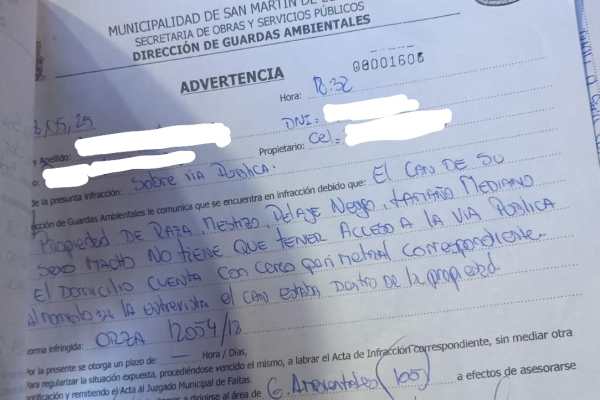 MUNICIPALIDAD DE SAN MARTÍN DE
SECRETARIA DE OBRAS Y SERVICIOS PÚBLICOS
DIRECCIÓN DE GUARDAS AMBIENTALES
ADVERTENCIA
00001606
Hora: 18:32
/05/25
Apellido:
DNI:
Propietario: Cel:
de la presunta infracción: Sobre via Publica.
cción de Guardas Ambientales le comunica que se encuentra en infracción debido que: El CAN DE SU
Propiedad DE RAZA Mestizo, Pelaje Negro, tamaño Mediano
Sexo Macho NO TIENE QUE TENER ACCESO A LA VIA PUBLICA
El Domicilio CUENTA CON Cerco perimetral correspondiente.
al momento de la entrevista el can estaba dentro de la propiedad
orma infringida: ORZA 12054/18
Por la presente se otorga un plazo de: Hora / Días,
Para regularizar la situación expuesta, procediéndose vencido el mismo, a labrar el Acta de Infracción correspondiente, sin mediar otra
notificación y remitiendo el Acta al Juzgado Municipal de Faltas.
dirigirse al área de G. Ambientales (105) a efectos de asesorarse